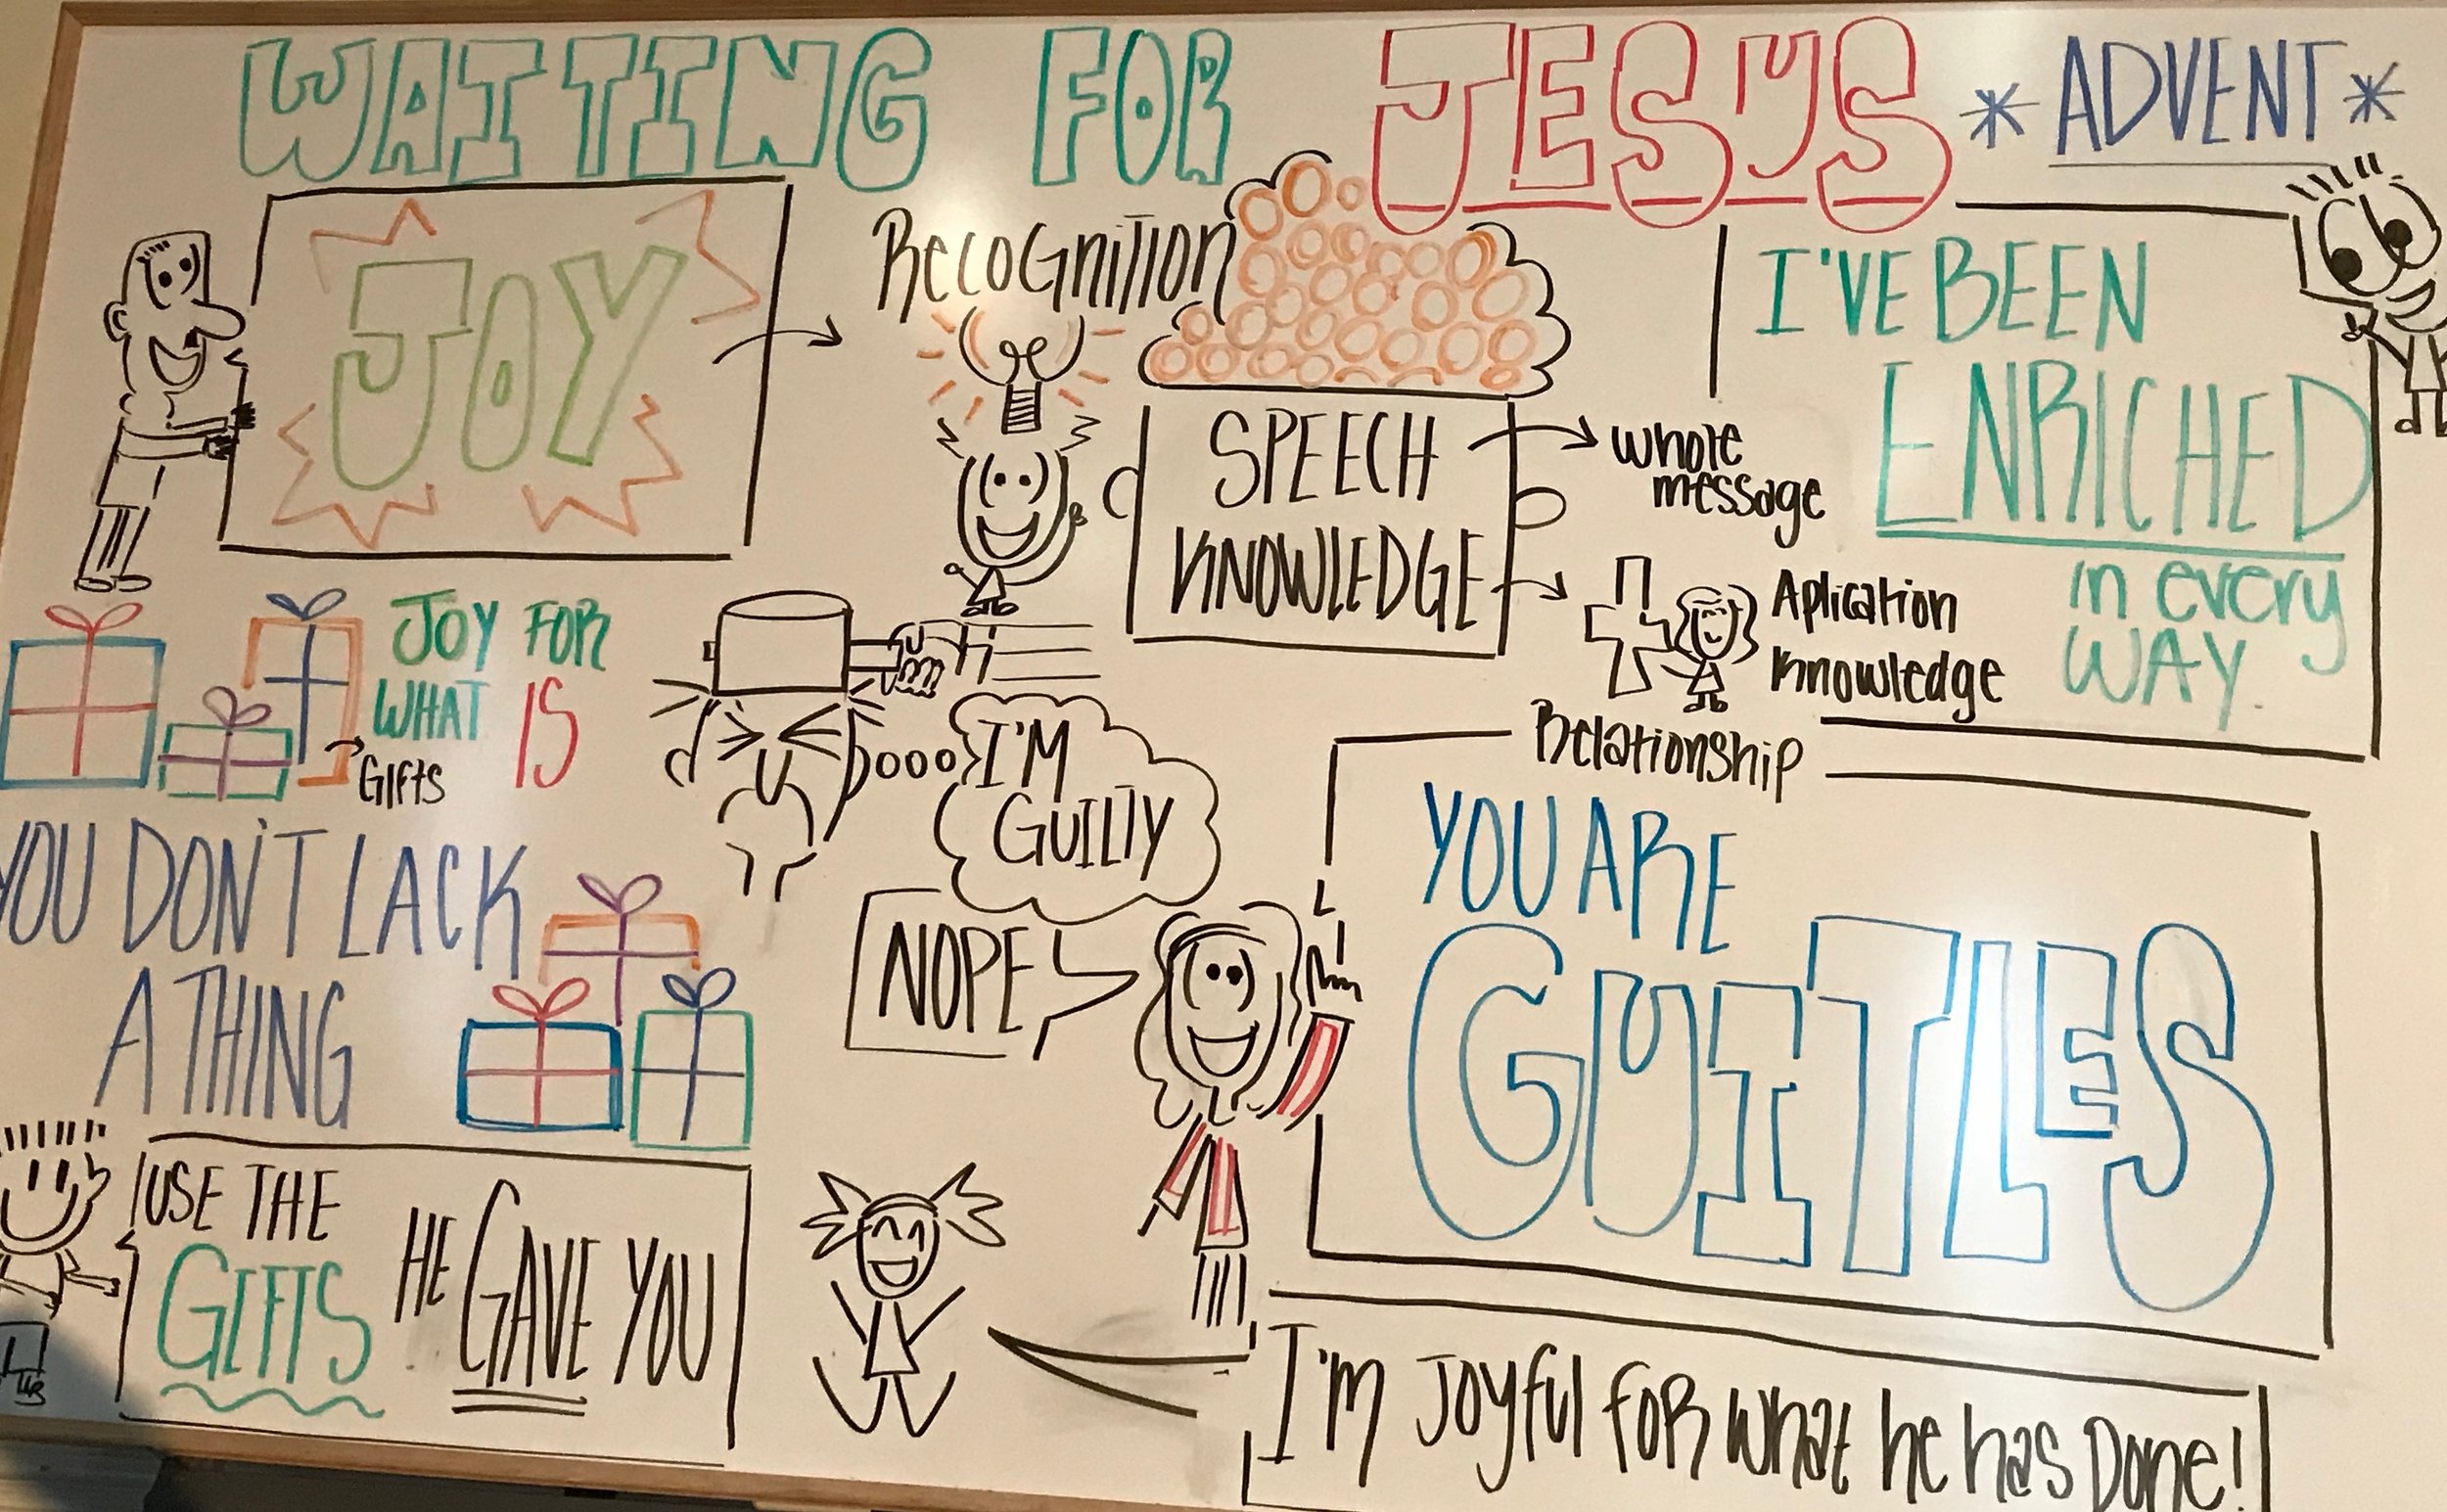 WAITING FOR JESUS * ADVENT *
JOY
RecoGnition
SPEECH
KNOWLEDGE
whole
message
Aplication
Knowledge
Relationship
I'VE BEEN
ENRICHED
in every
WAY.
JOY FOR
WHAT IS
Gifts
I'M
GUILTY
NOPE
YOU ARE
GUITLES
YOU DON'T LACK
A THING
USE THE
GIFTS HE GAVE YOU
I'm Joyful for what he has Done!